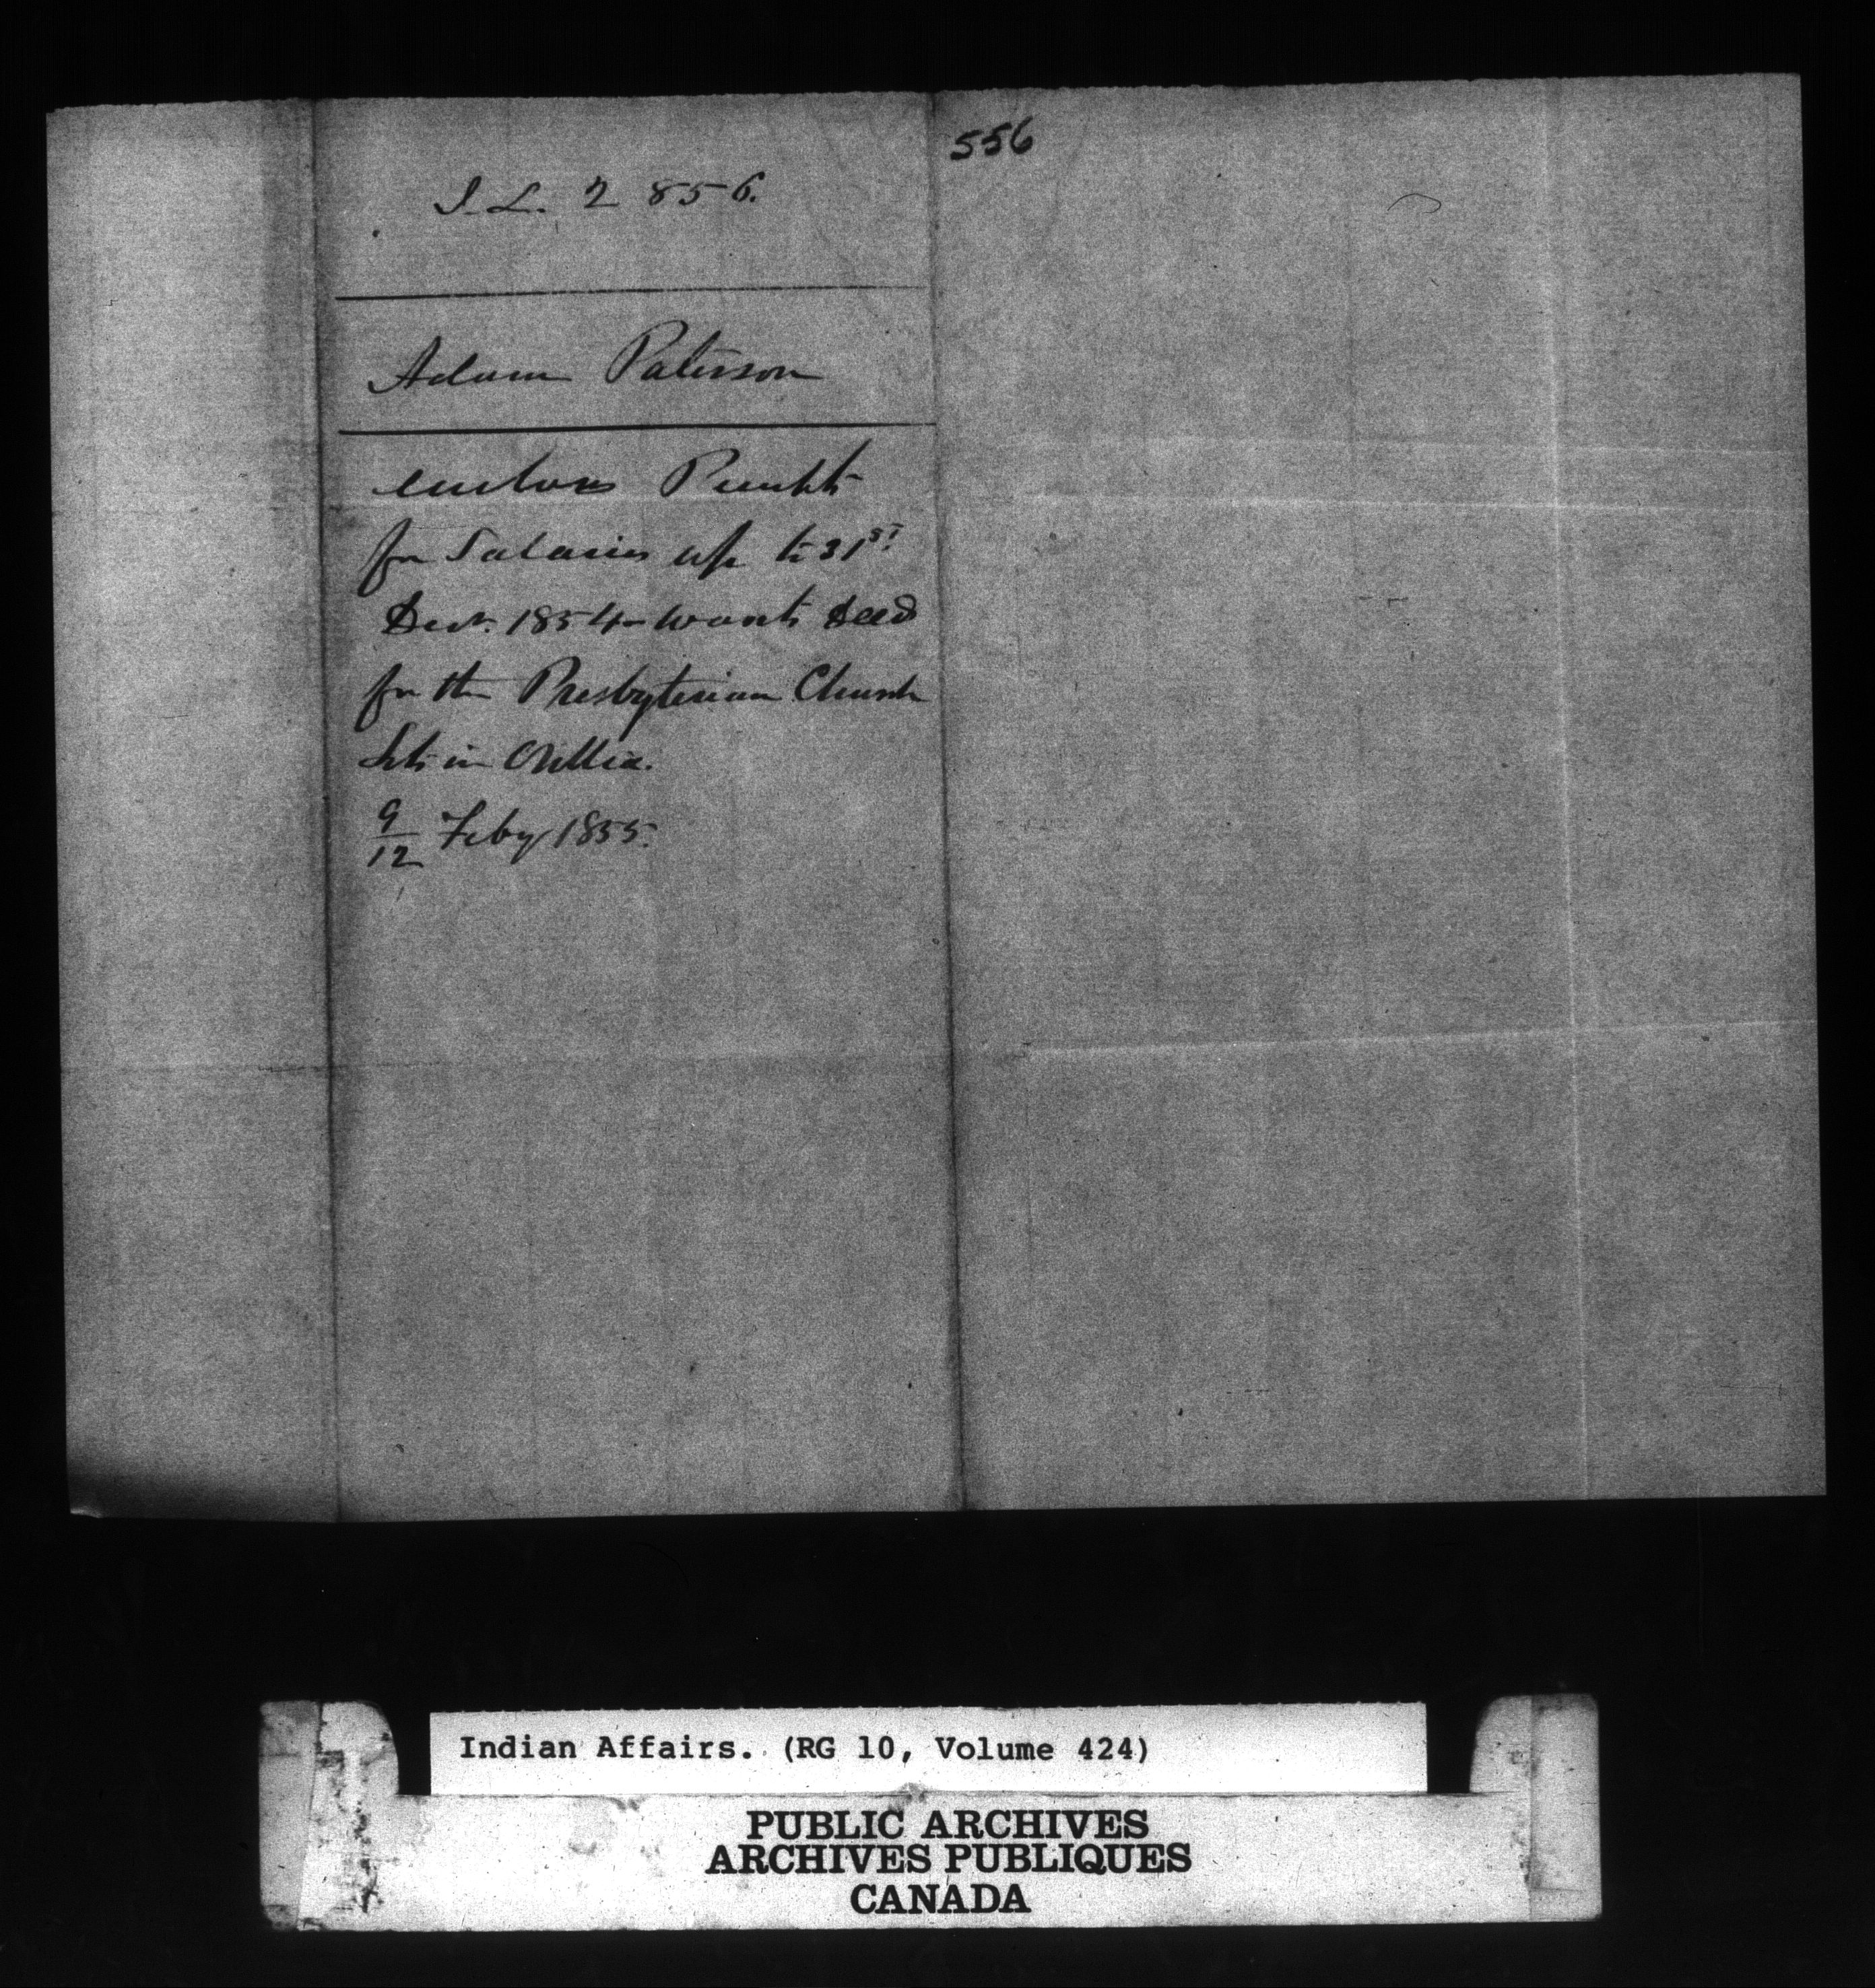 556
I. L. 2856.
Adam Paterson
encloses Receipts
for Salaries up to 31st
Decr. 1854 - wants Deed
for the Presbyterian Church
Lots in Orillia.
9/12 Feby 1855.
Indian Affairs. (RG 10, Volume 424)
PUBLIC ARCHIVES
ARCHIVES PUBLIQUES
CANADA